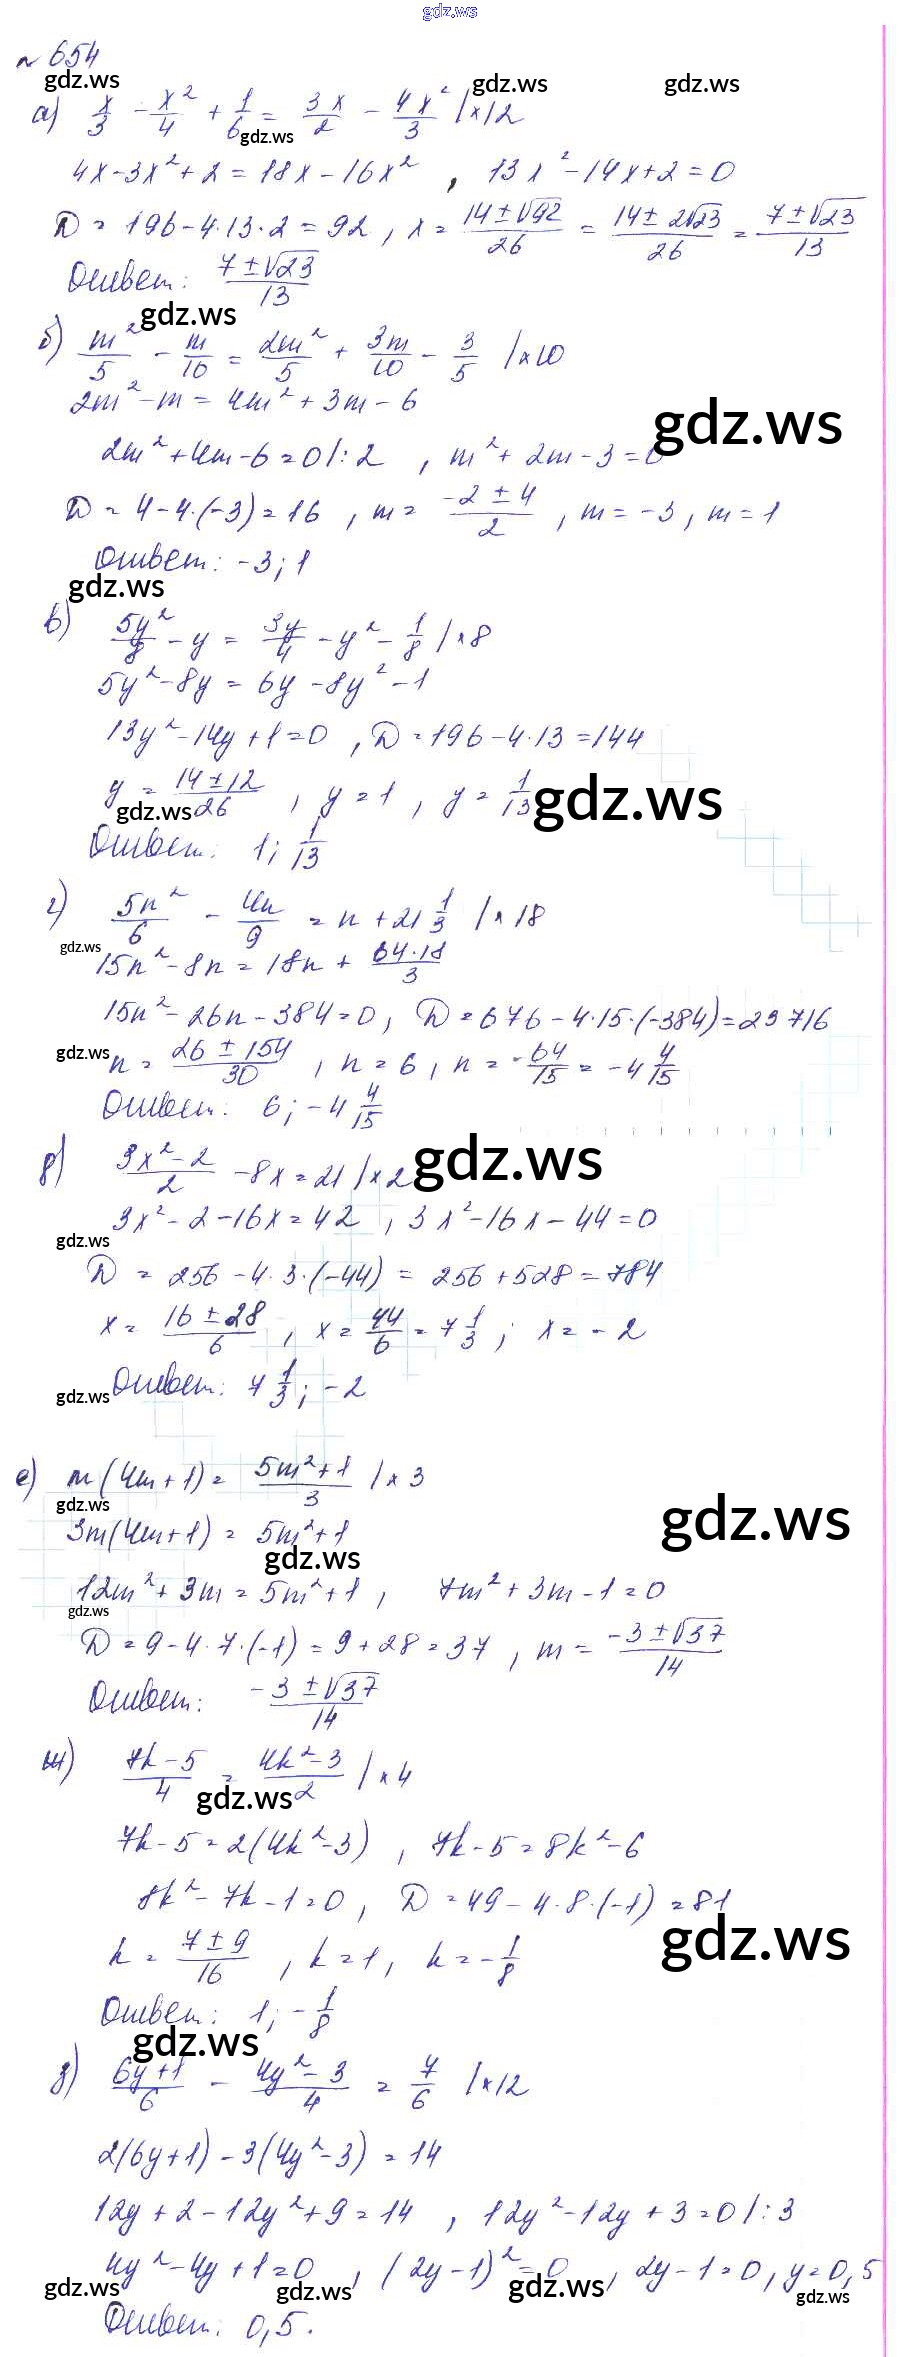 gdz.ws
№ 654
gdz.ws gdz.ws gdz.ws
а) x/3 - x²/4 + 1/6 = 3x/2 - 4x²/3 |×12
gdz.ws
4x-3x²+2=18x-16x² , 13x²-14x+2=0
D = 196-4·13·2=92, x= (14±√92)/26 = (14±2√23)/26 = (7±√23)/13
Ответ: (7±√23)/13
gdz.ws
б) m²/5 - m/10 = 2m²/5 + 3m/10 - 3/5 |×10
2m²-m=4m²+3m-6
gdz.ws
2m²+4m-6=0|:2 , m²+2m-3=0
D = 4-4·(-3)=16 , m= (-2±4)/2 , m=-3, m=1
Ответ: -3; 1
gdz.ws
в) 5y²/8 - y = 3y/4 - y² - 1/8 |×8
5y²-8y=6y-8y²-1
13y²-14y+1=0 , D=196-4·13=144
y = (14±12)/26 , y=1 , y= 1/13
gdz.ws gdz.ws
Ответ: 1; 1/13
г) 5n²/6 - 4n/9 = n+21 1/3 |×18
gdz.ws
15n²-8n=18n+ 64·18/3
15n²-26n-384=0, D=676-4·15·(-384)=23716
gdz.ws
n= (26±154)/30 , n=6, n=-64/15=-4 4/15
Ответ: 6; -4 4/15
д) (3x²-2)/2 -8x=21|×2
gdz.ws
3x²-2-16x=42 , 3x²-16x-44=0
gdz.ws
D = 256-4·3·(-44) = 256+528=784
x= (16±28)/6 , x= 44/6 = 7 1/3 ; x=-2
Ответ: 7 1/3; -2
gdz.ws
е) m(4m+1)= (5m²+1)/3 |×3
gdz.ws gdz.ws
3m(4m+1)=5m²+1
gdz.ws
12m²+3m=5m²+1 , 7m²+3m-1=0
gdz.ws
D=9-4·7·(-1)=9+28=37 , m= (-3±√37)/14
Ответ: (-3±√37)/14
ж) (7k-5)/4 = (4k²-3)/2 |×4
gdz.ws
7k-5=2(4k²-3) , 7k-5=8k²-6
8k²-7k-1=0, D=49-4·8·(-1)=81
gdz.ws
k= (7±9)/16 , k=1, k=-1/8
Ответ: 1; -1/8
gdz.ws
з) (6y+1)/6 - (4y²-3)/4 = 7/6 |×12
2(6y+1)-3(4y²-3)=14
12y+2-12y²+9=14 , 12y²-12y+3=0|:3
4y²-4y+1=0 , (2y-1)²=0, 2y-1=0, y=0,5
gdz.ws gdz.ws gdz.ws gdz.ws
Ответ: 0,5.